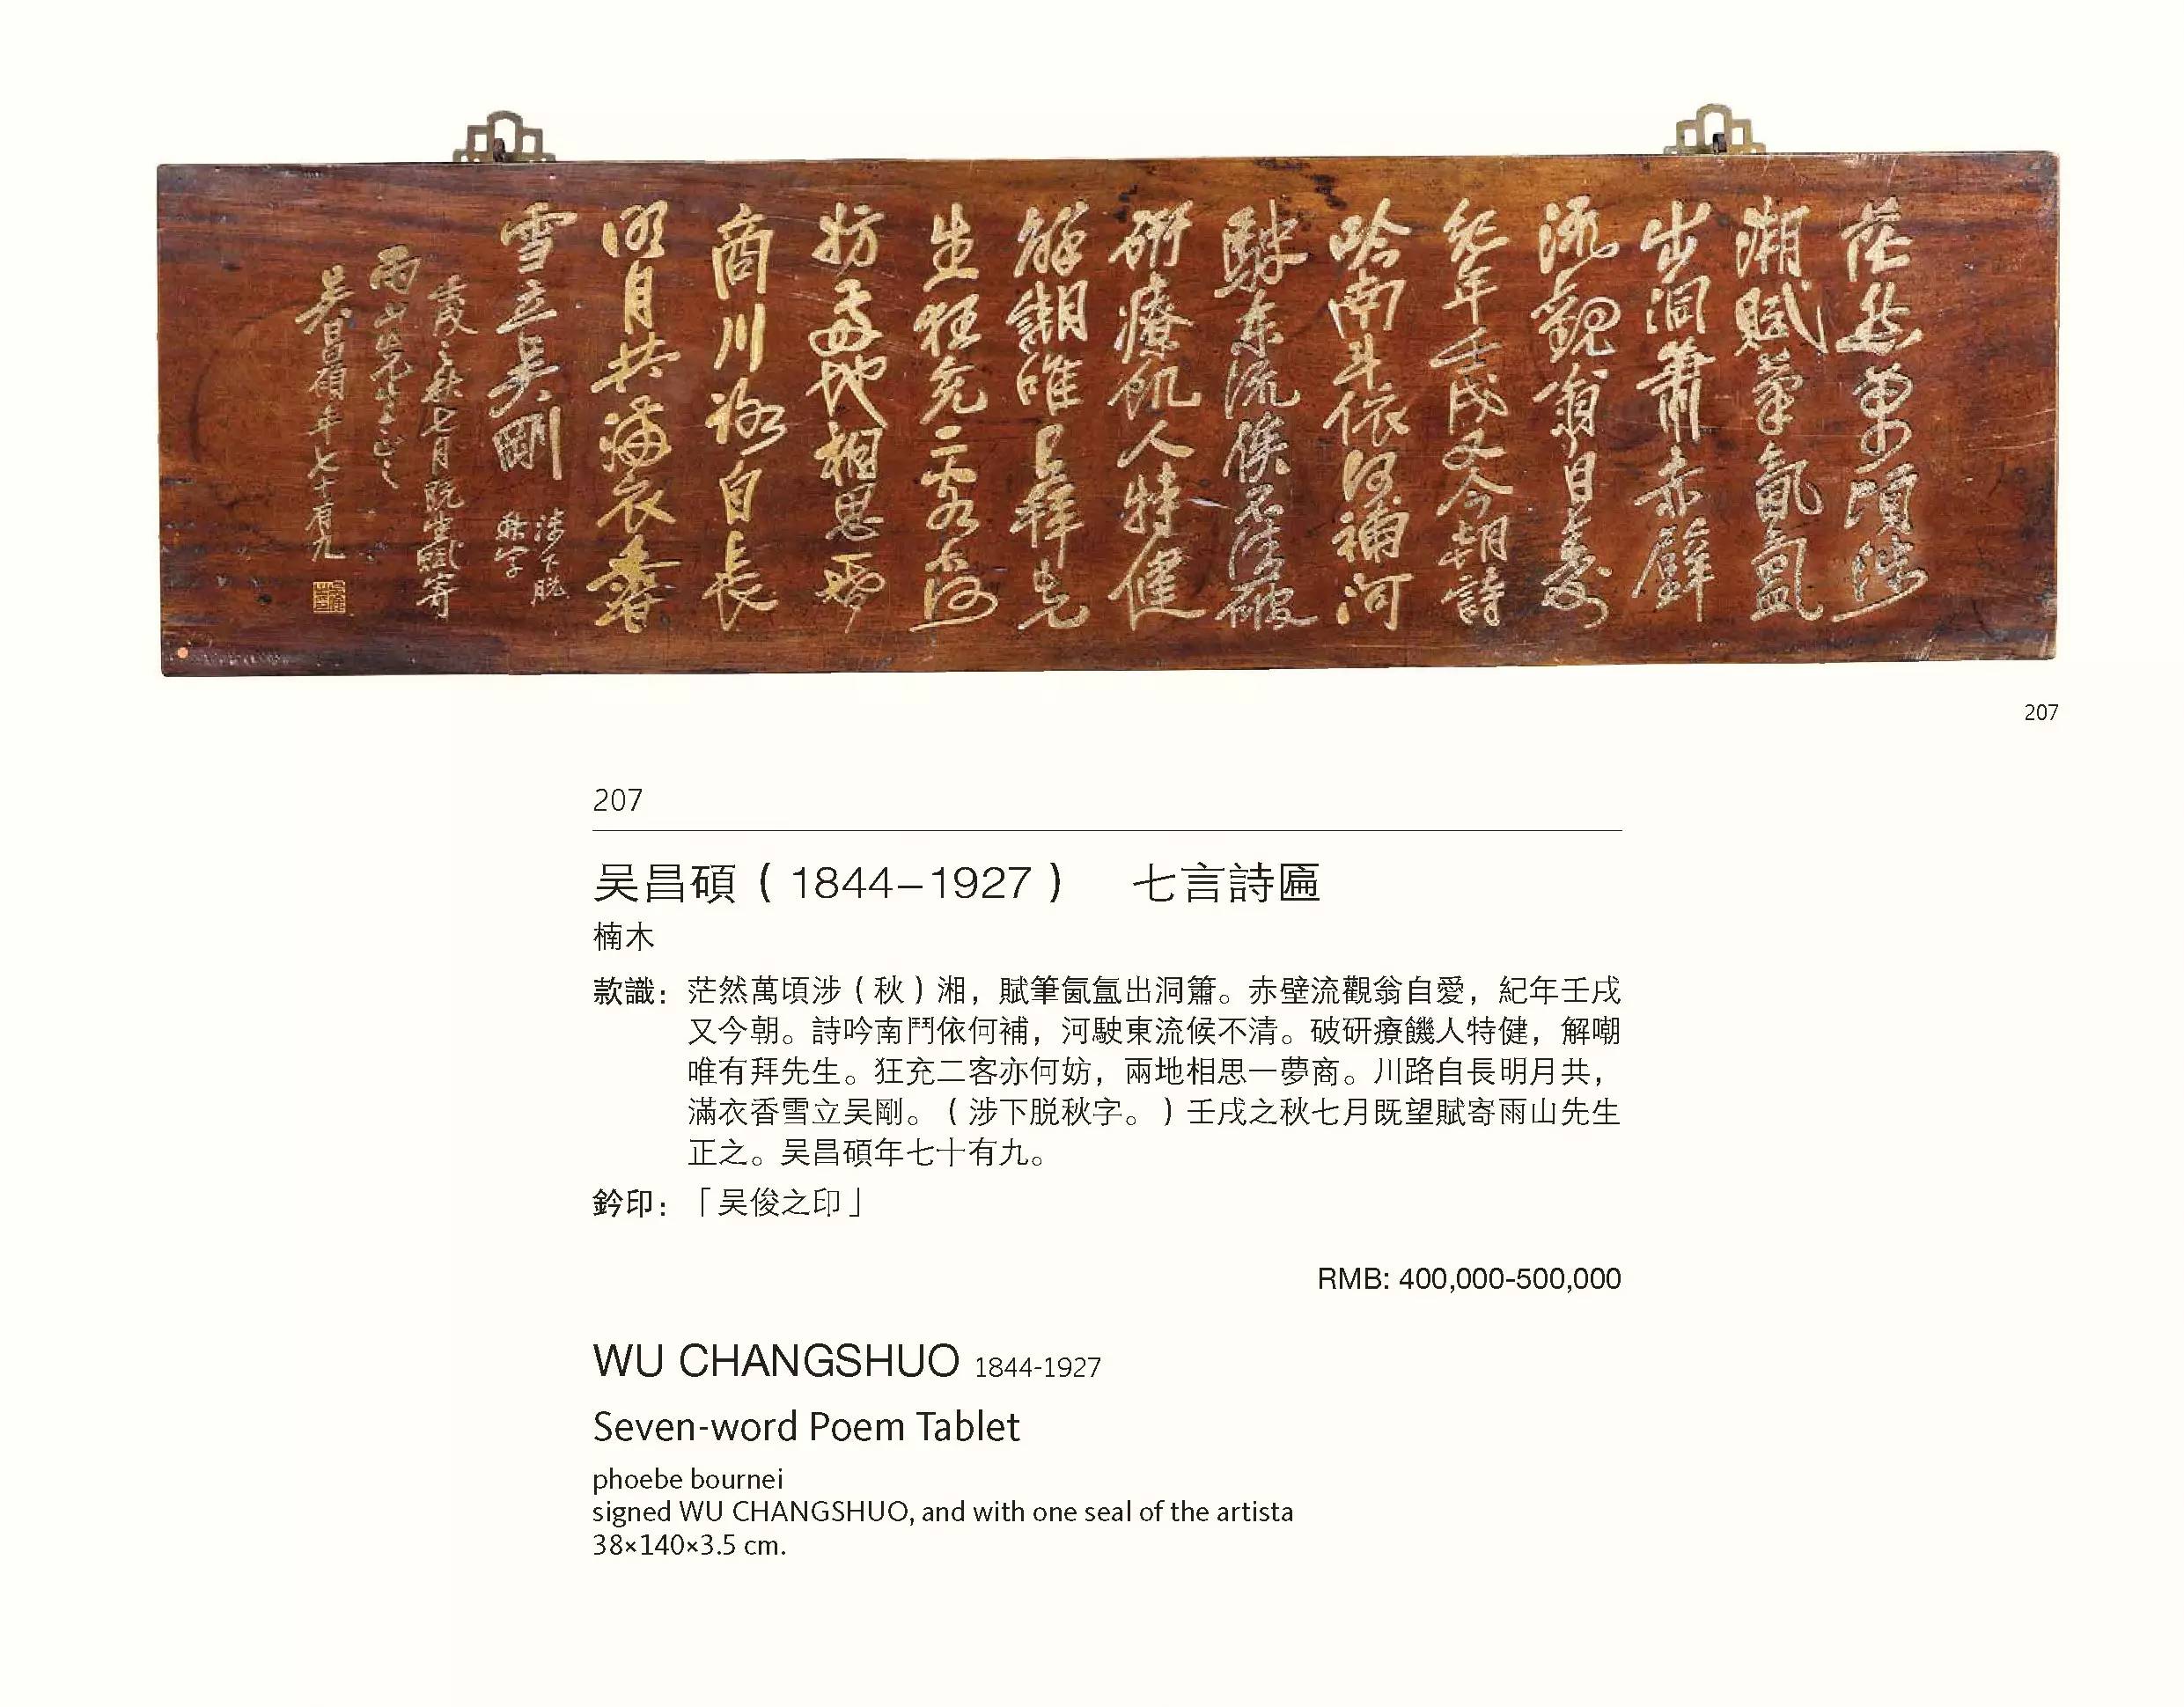 茫然萬頃涉
潮賦筆氤氳
出洞簫赤壁
流觀翁自愛
紀年壬戌又今朝詩
吟南斗依何補河
駛東流俟不清破
研療飢人特健
解嘲唯有拜先
生狂充二客亦何
妨兩地相思一夢
商川路自長
明月共滿衣香
雪立吳剛
涉下脫
秋字
壬戌之秋七月既望賦寄
雨山先生正之
吳昌碩年七十有九
207
207
吴昌碩（1844–1927） 七言詩匾
楠木
款識：茫然萬頃涉（秋）湘，賦筆氤氳出洞簫。赤壁流觀翁自愛，紀年壬戌
又今朝。詩吟南鬥依何補，河駛東流候不清。破研療饑人特健，解嘲
唯有拜先生。狂充二客亦何妨，兩地相思一夢商。川路自長明月共，
滿衣香雪立吴剛。（涉下脱秋字。）壬戌之秋七月既望賦寄雨山先生
正之。吴昌碩年七十有九。
鈐印：「吴俊之印」
RMB: 400,000-500,000
WU CHANGSHUO 1844-1927
Seven-word Poem Tablet
phoebe bournei
signed WU CHANGSHUO, and with one seal of the artista
38×140×3.5 cm.